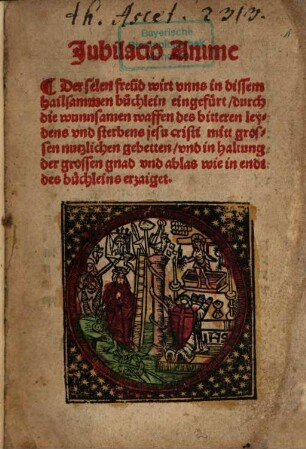 th. Ascet. 2313.
Bayerische
Jubilacio Anime
¶ Der selen freüd wirt vnns in dissem
hailsammen büchlein eingefürt / durch
die wunnsamen waffen des bitteren ley-
dens vnd sterbens jesu cristi mitt gros-
sen nutzlichen gebetten / vnd in haltung
der grossen gnad vnd ablas wie in endt
des büchleins erzaiget.
IHS